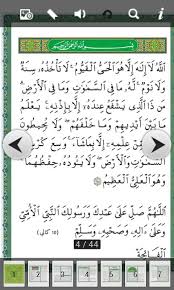 بِسْمِ اللَّهِ الرَّحْمَنِ الرَّحِيمِ
اَللّٰهُ لَآ اِلٰهَ اِلَّا هُوَ الْحَيُّ الْقَيُّوْمُ ەۚ لَا تَأْخُذُهٗ سِنَةٌ
وَّلَا نَوْمٌ ۗ لَهٗ مَا فِى السَّمٰوٰتِ وَمَا فِى الْاَرْضِ ۗ
مَنْ ذَا الَّذِيْ يَشْفَعُ عِنْدَهٗٓ اِلَّا بِاِذْنِهٖ ۗ يَعْلَمُ
مَا بَيْنَ اَيْدِيْهِمْ وَمَا خَلْفَهُمْ ۚ وَلَا يُحِيْطُوْنَ
بِشَيْءٍ مِّنْ عِلْمِهٖٓ اِلَّا بِمَا شَآءَ ۚ وَسِعَ كُرْسِيُّهُ
السَّمٰوٰتِ وَالْاَرْضَ ۚ وَلَا يَـُٔوْدُهٗ حِفْظُهُمَا ۚ
وَهُوَ الْعَلِيُّ الْعَظِيْمُ
اَللّٰهُمَّ صَلِّ عَلٰى عَبْدِكَ وَرَسُوْلِكَ النَّبِيِّ الْاُمِّيِّ
وَعَلٰى اٰلِهٖ وَصَحْبِهٖ وَسَلِّمْ
4 / 44
اَلْفَاتِحَةُ
1 2 3 4 5 6 7